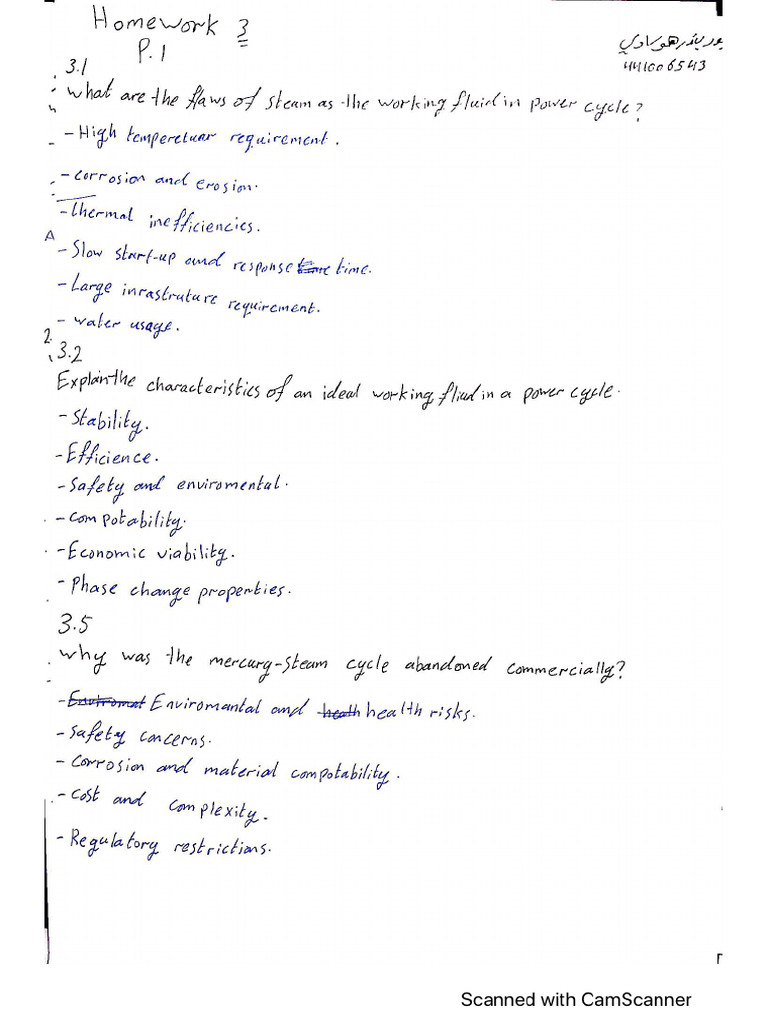 Homework 3
P.1
441006543
3.1
what are the flaws of steam as the working fluid in power cycle?
- High temperetuar requirement.
- corrosion and erosion.
- thermal inefficiencies.
- Slow start-up and response time.
- Large inrastruture requirement.
- water usage.
3.2
Explain the characteristics of an ideal working fluid in a power cycle.
- Stability.
- Efficience.
- Safety and enviromental.
- compotability.
- Economic viability.
- Phase change properties.
3.5
why was the mercury-steam cycle abandoned commercially?
- Enviromantal and health risks.
- Safety concerns.
- Corrosion and material compotability.
- Cost and complexity.
- Regulatory restrictions.
Scanned with CamScanner